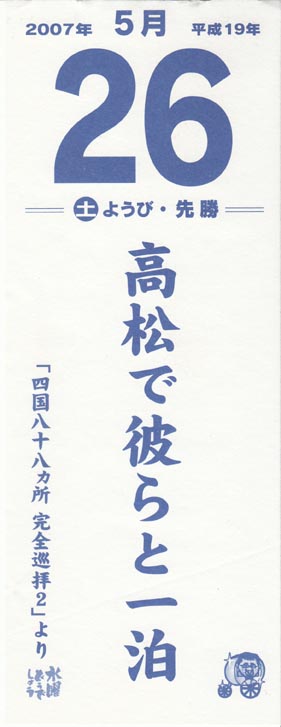 2007年 5月 平成19年
26
土ようび・先勝
高松で彼らと一泊
「四国八十八カ所 完全巡拝2」より
水曜
どうでしょう